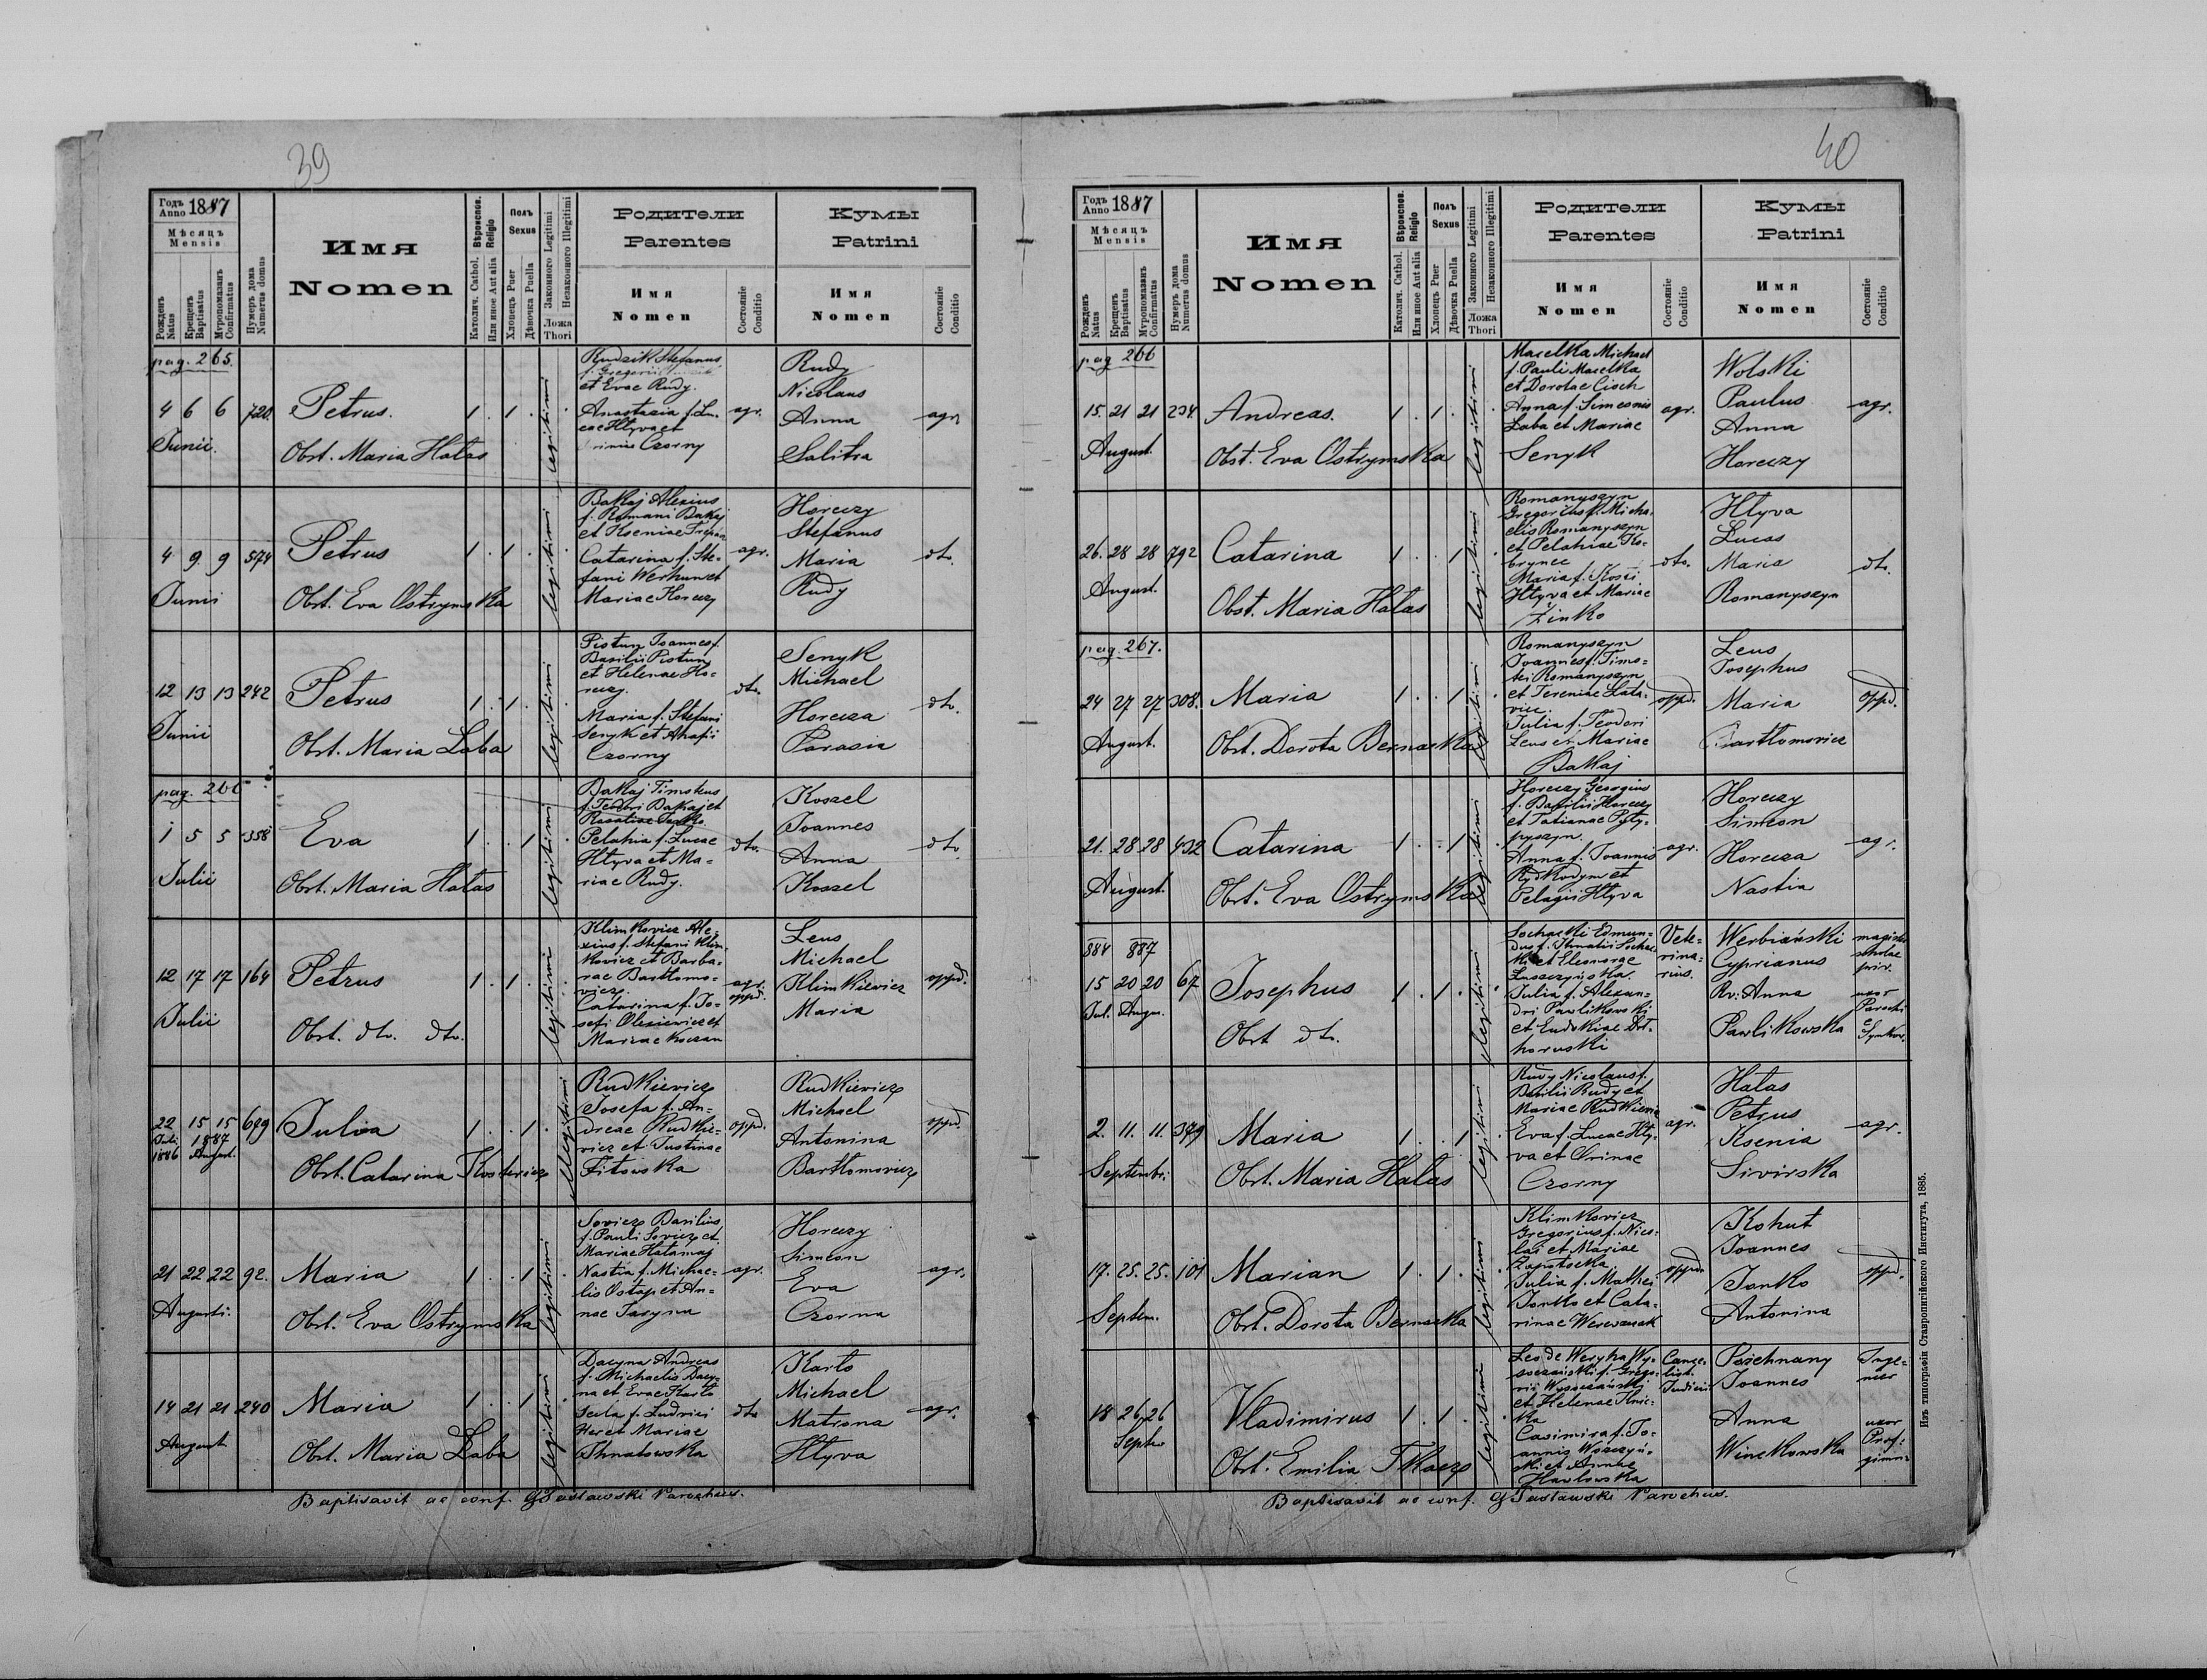 39
Годъ Anno 1887
Мѣсяцъ Mensis
Рожденъ Natus
Крещенъ Baptisatus
Муропомазанъ Confirmatus
Нумеръ дома Numerus domus
Имя Nomen
Вѣроиспов. Religio
Католич. Cathol.
Или иное Aut alia
Полъ Sexus
Хлопець Puer
Дѣвочка Puella
Законного Legitimi
Незаконного Illegitimi
Ложа Thori
Родители Parentes
Имя Nomen
Состояніе Conditio
Кумы Patrini
Имя Nomen
Состояніе Conditio
pag. 265.
4 6 6 720 Junii.
Petrus.
Obst. Maria Hałas
1 . 1 . legitimi
Rudzik Stefanus
f. Gregorii
et Evae Rudy.
Anastazia f. Lu-
cae Hływa et
Czorny
agr.
Rudy
Nicolaus
Anna
Salitra
agr.
4 9 9 574 Junii
Petrus
Obst. Eva Ostrymska
1 . 1 . legitimi
Bakaj Alexius
f. Romani Bakaj
et Kseniae
Catarina f. Ste-
fani Werhun et
Mariae Horczy
agr.
Horeczy
Stefanus
Maria
Rudy
dto.
12 13 13 242 Junii
Petrus
Obst. Maria Łaba
1 . 1 . legitimi
Pistun Joannes f.
Basilii Pistun
et Helenae Ho-
reczy.
Maria f. Stefani
Senyk et Ahafii
Czorny
dto.
Senyk
Michael
Horecza
Parasia
dto.
pag. 266
1 5 5 358 Julii
Eva
Obst. Maria Hałas
1 . . 1 legitimi
Bakaj Timoteus
f. Teodori Bakaj et
Rosaliae
Pelahia f. Lucae
Hływa et Ma-
riae Rudy.
dto.
Koszel
Joannes
Anna
Koszel
dto.
12 17 17 164 Julii
Petrus
Obst. dto. dto.
1 . 1 . legitimi
Klimkovicz Ale-
xius f. Stefani Klim-
kovicz et Barba-
rae Bartłomo-
vicz.
Catarina f. Jo-
sefi Olexievicz et
Mariae
agr.
oppd.
Leus
Michael
Klimkiewicz
Maria
oppd.
22 15 15 689
Juli 1887
1886 August.
Julia
Obst. Catarina
1 . . 1 illegitimi
Rudkievicz
Josefa f. An-
dreae Rudkie-
vicz et Justinae
Fitowska
oppd.
Rudkievicz
Michael
Antonina
Bartłomovicz
oppd.
21 22 22 92. Augusti.
Maria
Obst. Eva Ostrymska
1 . . 1 legitimi
Sovicz Basilius
f. Pauli Sovicz et
Mariae Hałamaj
Nastia f. Michae-
lis Ostap et An-
nae Jaryna
agr.
Horeczy
Simeon
Eva
Czorna
agr.
14 21 21 240 August
Maria
Obst. Maria Łaba
1 . . 1 legitimi
Dacyna Andreas
f. Michaelis Dacy-
na et Evae Karło
f. Ludvici
Her et Mariae
Ihnatowska
dto
Karło
Michael
Matrona
Hływa
agr.
Baptisavit ac conf. Parochus.
40
Годъ Anno 1887
Мѣсяцъ Mensis
Рожденъ Natus
Крещенъ Baptisatus
Муропомазанъ Confirmatus
Нумеръ дома Numerus domus
Имя Nomen
Вѣроиспов. Religio
Католич. Cathol.
Или иное Aut alia
Полъ Sexus
Хлопець Puer
Дѣвочка Puella
Законного Legitimi
Незаконного Illegitimi
Ложа Thori
Родители Parentes
Имя Nomen
Состояніе Conditio
Кумы Patrini
Имя Nomen
Состояніе Conditio
pag 266
15. 21 21 234 August.
Andreas.
Obst. Eva Ostrymska
1 . 1 . legitimi
Macelka Michael
f. Pauli Macelka
et Dorotae Cisch
Anna f. Simeonis
Łaba et Mariae
Senyk
agr.
Wolski
Paulus
Anna
Horeczy
agr.
26. 28 28 792 August.
Catarina
Obst. Maria Hałas
1 . . 1 legitimi
Romanyszyn
Gregorius f. Micha-
elis Romanyszyn
et Pelahiae Ko-
brynec
Maria f.
Hływa et Mariae
Zinko
dto.
Hływa
Lucas
Maria
Romanyszyn
dto.
pag. 267.
24 27 27 308. August.
Maria
Obst. Dorota Bernacka
1 . . 1 legitimi
Romanyszyn
Joannes f. Timo-
tei Romanyszyn
et Tereniae
Julia f. Teodori
Leus et Mariae
Bakaj
oppd.
Leus
Josephus
Maria
Bartłomovicz
oppd.
21. 28 28 432 August.
Catarina
Obst. Eva Ostrymska
1 . . 1 legitimi
Horeczy Georgius
f. Basilii Horeczy
et Tatianae Pyły-
pyszyn.
Anna f. Joannis
Rydkodym et
Pelagii Hływa
agr.
Horeczy
Simeon
Horecza
Nastia
agr.
884 887
15 20 20 67
Jul. Augus.
Josephus
Obst dto.
1 . 1 . illegitimi
Sochacki Edmun-
dus f. Ihnatii Sochac-
ki et Eleonorae
Łuszczyńska.
Julia f. Alexan-
dri Pawlikowski
et Eudokiae Dol-
horuski
Vete-
rina-
rius.
Werbiański
Cyprianus
Rv: Anna
Pawlikowska
magister
scholae
priv.
uxor
Parochi
2. 11. 11. 379 Septembr:
Maria
Obst. Maria Hałas
1 . . 1 legitimi
Rudy Nicolaus f.
Basilii Rudy et
Mariae Rudkievicz
Eva f. Lucae Hły-
va et Irinae
Czorny
agr.
Hałas
Petrus
Ksenia
Sivirska
agr.
17. 25. 25. 101 Septem.
Marian
Obst. Dorota Bernacka
1 . 1 . legitimi
Klimkovicz
Gregorius f. Nico-
lai et Mariae
Zapotocka
Julia f. Mathei
Jonko et Cata-
rinae
oppd.
Kohut
Joannes
Jonko
Antonina
oppd.
18 26 26 Septbr
Vladimirus
Obst. Emilia Tkacz
1 . 1 . legitimi
Leo de Weryha Wy-
soczański f. Grego-
rii Wysoczański
et Helenae Knic-
ka
Casimira f. Jo-
annis
ski et Annae
Hawłowska
Cance-
list.
Judicii
Joannes
Anna
Winckowska
Inge-
nier
uxor
Prof:
gimn:
Baptisavit ac conf. Parochus.
Изъ типографіи Ставропигійского Института, 1885.